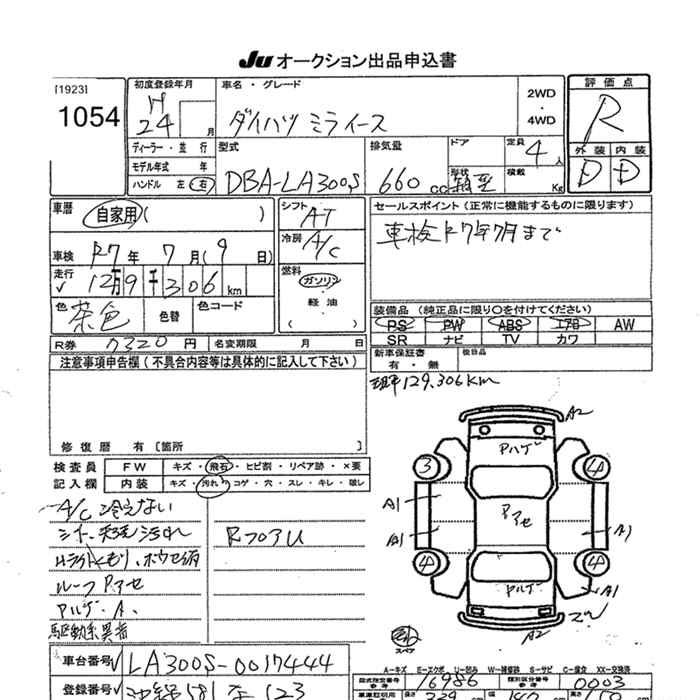 Ju オークション出品申込書
[1923]
1054
初度登録年月
H
24
月
車名・グレード
ダイハツ ミライース
2WD
・
4WD
評価点
R
外装 内装
D D
ディーラー・並行
モデル年式 年
ハンドル 左 右
型式
DBA-LA300S
排気量
660 cc
ドア
形状
箱型
定員
4人
積載
Kg
車歴
自家用( )
シフト
AT
冷房
A/C
セールスポイント(正常に機能するものに限ります)
車検R7年7月まで
車検 R7年 7月(9日)
走行
12万9千306km
燃料
ガソリン
軽油
( )
色
茶色
色替
色コード
装備品(純正品に限り○を付けてください)
PS PW ABS エアB AW
SR ナビ TV カワ
R券 7320円
名変期限 月 日
新車保証書
有・無
後日品
注意事項申告欄(不具合内容等は具体的に記入して下さい)
現車129,306km
修復歴 有〔箇所 〕
検査員
記入欄
FW キズ・飛石・ヒビ割・リペア跡・×要
内装 キズ・汚れ・コゲ・穴・スレ・キレ・破レ
A/C 冷えない
ルーフPアセ
Pハゲ・A、
駆動系異音
RフロアU
A2
Pハゲ
3
4
A1
Pアセ
A1
A1
4
4
Pハゲ
A1
A2
スペア
A-キズ E-エクボ U-凹み W-補修跡 S-サビ C-腐食 XX-交換済
車台番号 LA300S-0017444
登録番号
581
123
型式指定番号
参考
16986
類別区分番号
参考
0003